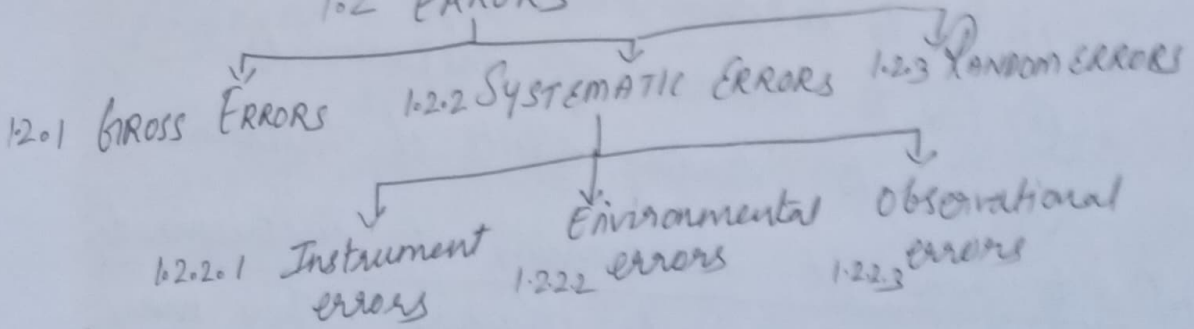 1.2 ERRORS
1.2.1 GROSS ERRORS 1.2.2 SYSTEMATIC ERRORS 1.2.3 RANDOM ERRORS
1.2.2.1 Instrument errors
1.2.2.2 Environmental errors
1.2.2.3 Observational errors